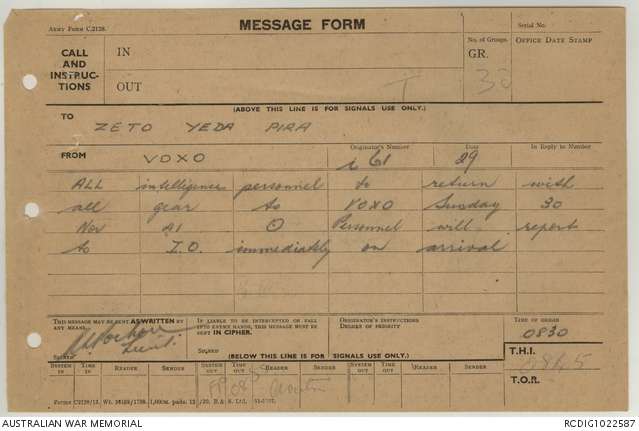 MESSAGE FORM
Army Form C.2128.
Serial No.
CALL AND INSTRUCTIONS
IN
OUT
No. of Groups.
GR.
OFFICE DATE STAMP
(ABOVE THIS LINE IS FOR SIGNALS USE ONLY.)
TO
ZETO YEDA PIRA
FROM VOXO
Originator's Number
i 61
Date
29
In Reply to Number
ALL intelligence personnel to return with
all gear to VOXO Sunday 30
Nov 41 O Personnel will report
to I.O. immediately on arrival
THIS MESSAGE MAY BE SENT AS WRITTEN BY ANY MEANS.
IF LIABLE TO BE INTERCEPTED OR FALL INTO ENEMY HANDS, THIS MESSAGE MUST BE SENT IN CIPHER.
ORIGINATOR'S INSTRUCTIONS
DEGREE OF PRIORITY
TIME OF ORIGIN
0830
Lieut.
SIGNED
SIGNED
(BELOW THIS LINE IS FOR SIGNALS USE ONLY.)
T.H.I.
0845
T.O.R.
SYSTEM IN
TIME IN
READER
SENDER
SYSTEM OUT
TIME OUT
READER
SENDER
SYSTEM OUT
TIME OUT
READER
SENDER
AUSTRALIAN WAR MEMORIAL
RCDIG1022587